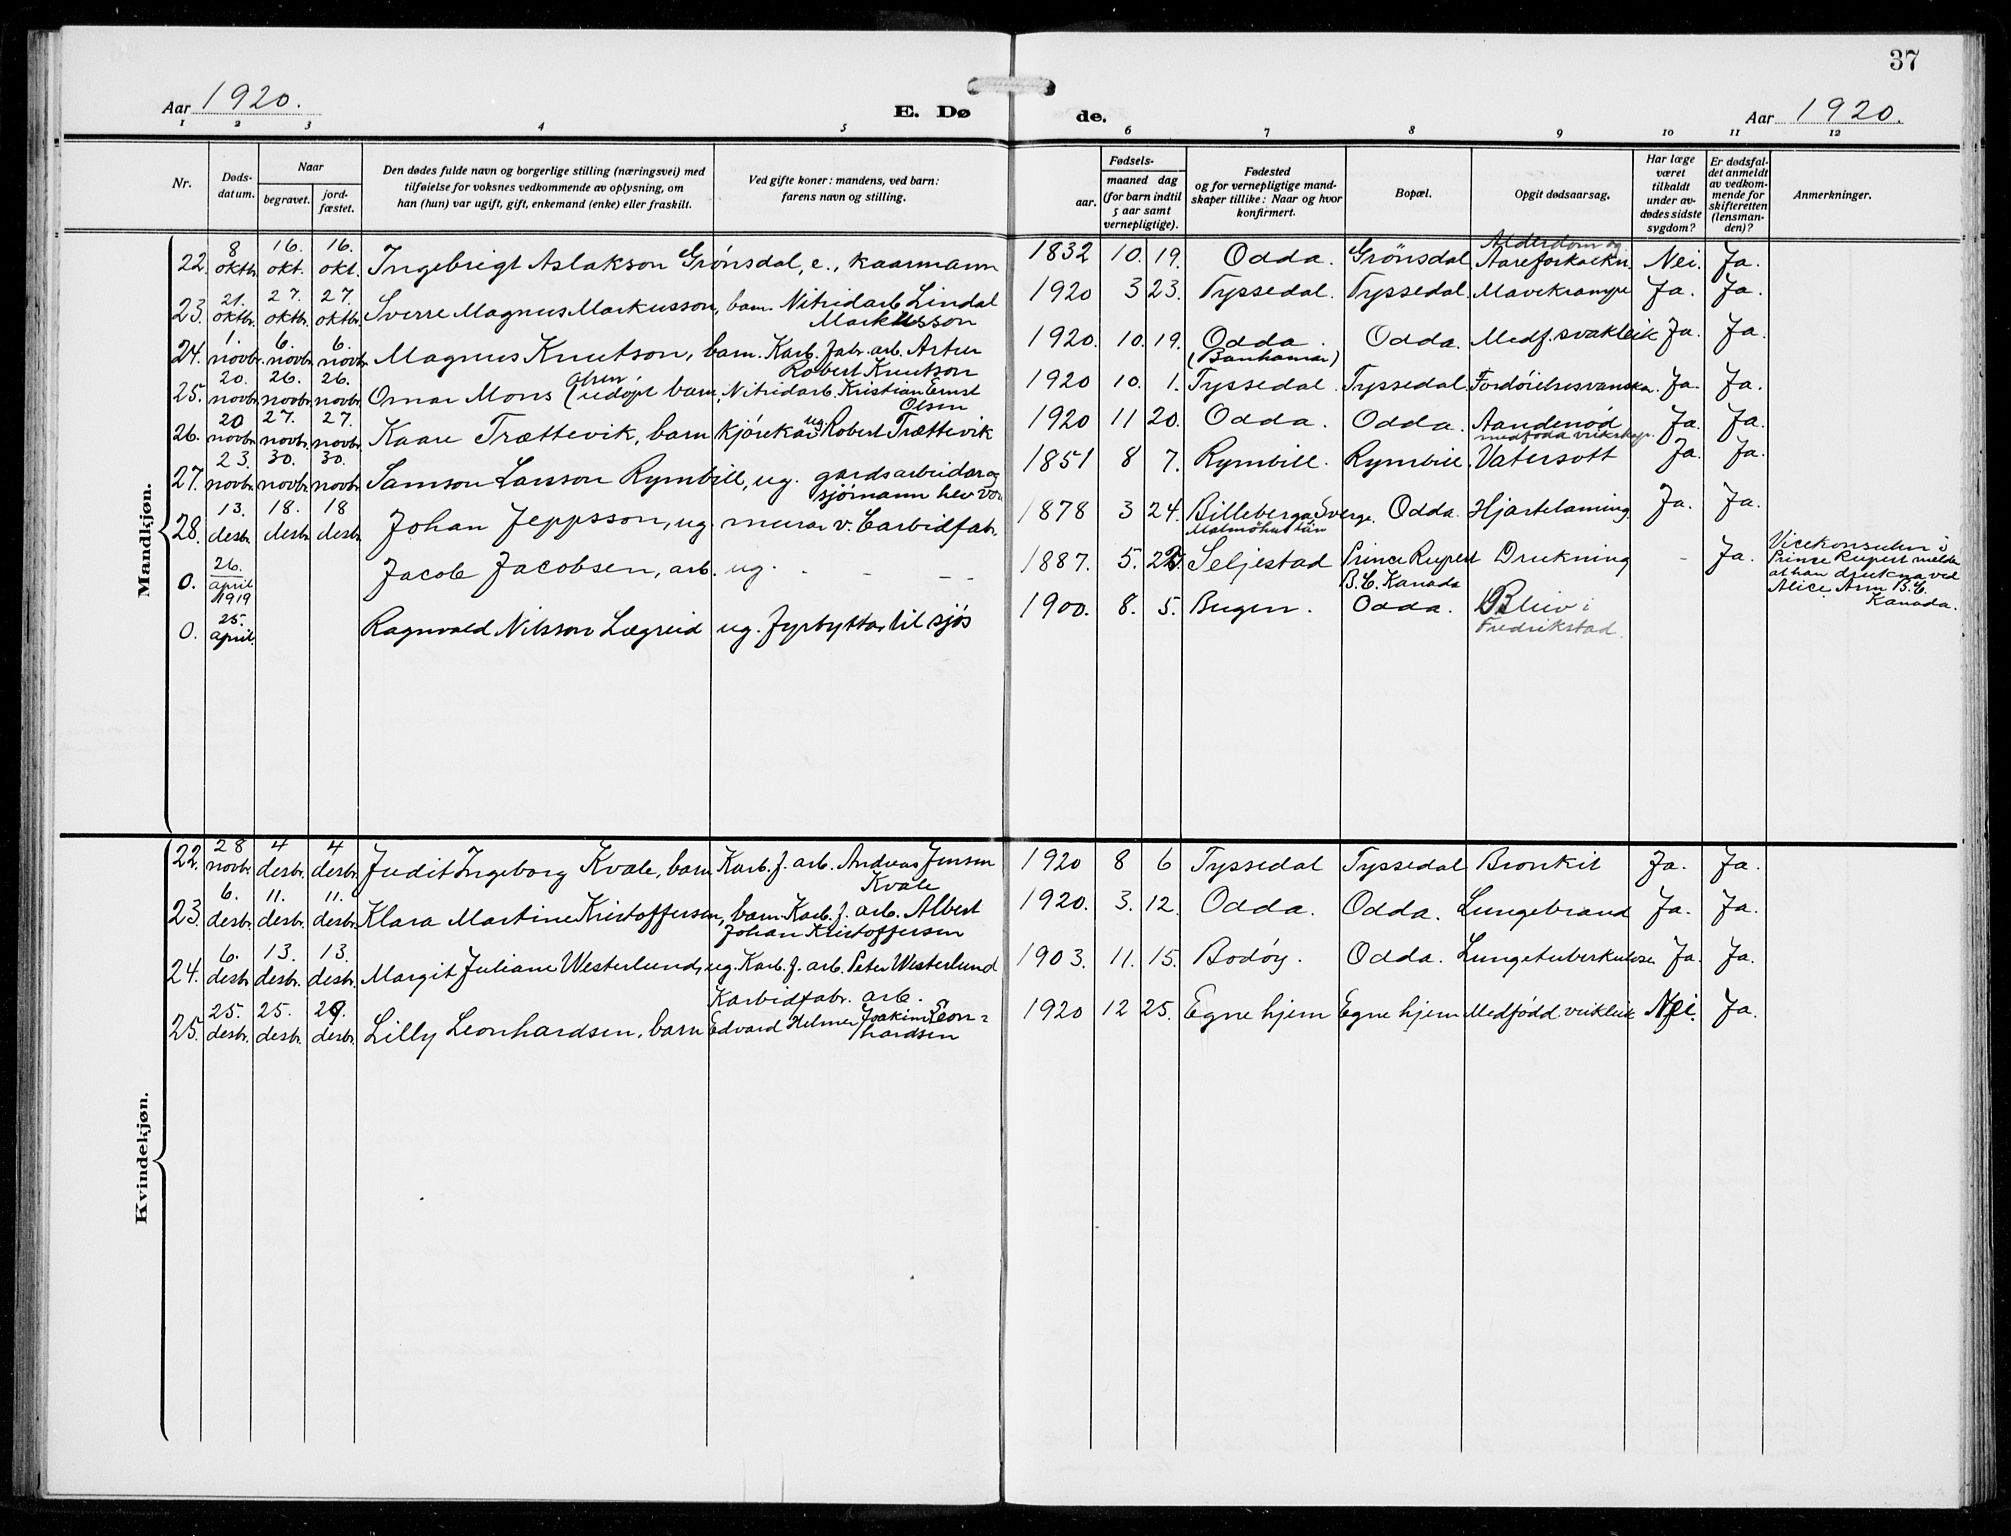 37
Aar 1920.
E. Døde.
Aar 1920.
1 2 3 4 5 6 7 8 9 10 11 12
Nr.
Døds-
datum.
Naar
begravet.
jord-
fæstet.
Den dødes fulde navn og borgerlige stilling (næringsvei) med
tilføielse for voksnes vedkommende av oplysning, om
han (hun) var ugift, gift, enkemand (enke) eller fraskilt.
Ved gifte koner: mandens, ved barn:
farens navn og stilling.
Fødsels-
aar.
maaned dag
(for barn indtil
5 aar samt
vernepligtige).
Fødested
og for vernepligtige mand-
skaper tillike: Naar og hvor
konfirmert.
Bopæl.
Opgit dødsaarsag.
Har læge
været
tilkaldt
under av-
dødes sidste
sygdom?
Er dødsfal-
det anmeldt
av vedkom-
mende for
skifteretten
(lensman-
den)?
Anmerkninger.
Mandkjøn.
22. 8 oktbr. 16. okt. 16. okt. Ingebrigt Aslakson Grønsdal, e., kaarmann 1832 10. 19. Odda. Grönsdal Alderdom og Aareforkalkn. Nei. Ja.
23. 21. oktbr. 27. oktbr. 27. oktbr. Sverre Magnus Markusson, barn. Nitridarb. Lindal Markusson 1920 3 23. Tyssedal. Tyssedal. Mavekrampe Ja. Ja.
24. 1. novbr. 6. novbr. 6. novbr. Magnus Knutson, barn. Karb. fabr. arb. Artur Robert Knutson 1920. 10. 19. Odda. (Banhamar) Odda. Medf. svakleik Ja. Ja.
25. 20. novbr. 26. novbr. 26. novbr. Omar Mons Olsen (udøpt barn, Nitridarb. Kristian Ernst Olsen 1920 10. 1. Tyssedal. Tyssedal. Fordöielsesvanska. Ja. Ja.
26. 20 novbr. 27. novbr. 27. novbr. Kaare Trættevik, barn kjørekar ug. Robert Trættevik 1920 11 20. Odda. Odda. Aandenöd medföda veikskap. Ja. Ja.
27. 23. novbr. 30. novbr. 30. novbr. Samson Larsson Rymbill, ug. gardsarbeidar og sjömann hev vor 1851 8 7. Rymbill. Rymbill. Vatersott Ja. Ja.
28. 13. desbr. 18. desbr. 18 desbr. Johan Jeppsson, ug. murar v. Carbidfabr. 1878 3 24. Billeberga Sverge. Malmöhus län Odda. Hjartelaming Ja. Ja.
0. 26. april 1919 Jacob Jacobsen, arb. ug. 1887. 5. Seljestad Prince Rupert B.C. Kanada Drukning - Ja. Vicekonsulen i Prince Rupert melde at han drukna ved Alice Arm B.C. Kanada.
0. 25. april. Ragnvald Nilsson Lægreid ug. fyrbyttar til sjös 1900. 8. 5. Eugen. Odda. Blev i Fredrikstad.
Kvindekjøn.
22. 28 novbr. 4 desbr. 4 desbr. Judit Ingeborg Kvale, barn Karb. f. arb. Andreas Jensen Kvale 1920 8 6 Tyssedal Tyssedal Bronkit Ja. Ja.
23. 6. desbr. 11. desbr. 11. desbr. Klara Martine Kristoffersen, barn Karb. f. arb. Albert Johan Kristoffersen 1920. 3. 12. Odda. Odda. Lungebrand Ja. Ja.
24. 6. desbr. 13. desbr. 13. desbr. Margit Juliane Westerlund, ug. Karb. f. arb. Peter Westerlund 1903. 11. 15. Bodöy. Odda. Lungetuberkulose Ja. Ja.
25. 25. desbr. 25. desbr. 29. desbr. Lilly Leonhardsen, barn Karbidfabr. arb. Edvard Helmer Joakim Leonhardsen 1920 12 25. Egne hjem Egne hjem Medfødd veikleik Nei. Ja.